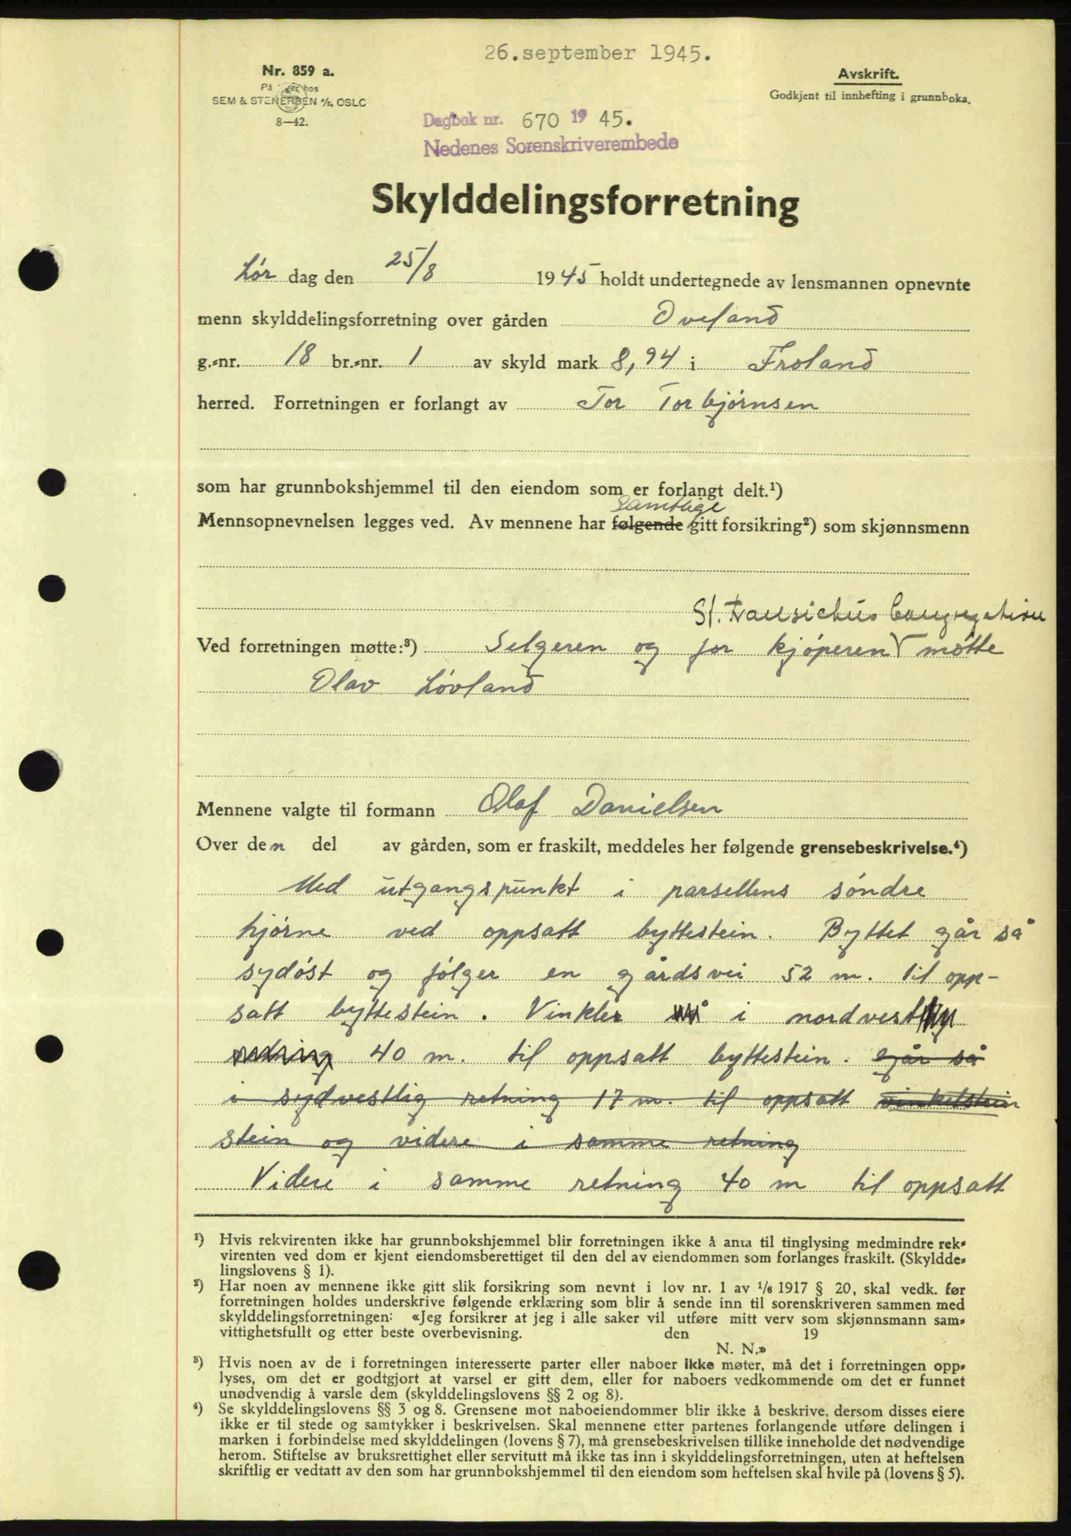 26.september 1945.
Nr. 859 a.
På lager hos
SEM & STENERSEN A/S, OSLO
8—42.
Avskrift.
Godkjent til innhefting i grunnboka.
Dagbok nr. 670 19 45.
Nedenes Sorenskriverembede
Skylddelingsforretning
Lør dag den 25/8 1945 holdt undertegnede av lensmannen opnevnte
menn skylddelingsforretning over gården Oveland
g.-nr. 18 br.-nr. 1 av skyld mark 8,94 i Froland
herred. Forretningen er forlangt av Tor Torbjørnsen
som har grunnbokshjemmel til den eiendom som er forlangt delt.¹)
samtlige
Mennsopnevnelsen legges ved. Av mennene har følgende gitt forsikring²) som skjønnsmenn
St. Congregation
Ved forretningen møtte:³) Selgeren og for kjøperen møtte
Olav Løvland
Mennene valgte til formann Olaf Danielsen
Over den del av gården, som er fraskilt, meddeles her følgende grensebeskrivelse.⁴)
Med utgangspunkt i parsellens søndre
hjørne ved oppsatt byttestein. Byttet går så
sydøst og følger en gårdsvei 52 m. til opp-
satt byttestein. Vinkler i nordvest
retning 40 m. til oppsatt byttestein. går så
i sydvestlig retning 17 m. til oppsatt vinkelstein
stein og videre i samme retning
Videre i samme retning 40 m til oppsatt
¹) Hvis rekvirenten ikke har grunnbokshjemmel blir forretningen ikke å anta til tinglysing medmindre rek-
virenten ved dom er kjent eiendomsberettiget til den del av eiendommen som forlanges fraskilt. (Skyldde-
lingslovens § 1).
²) Har noen av mennene ikke gitt slik forsikring som nevnt i lov nr. 1 av 1/6 1917 § 20, skal vedk. før
forretningen holdes underskrive følgende erklæring som blir å sende inn til sorenskriveren sammen med
skylddelingsforretningen: «Jeg forsikrer at jeg i alle saker vil utføre mitt verv som skjønnsmann sam-
vittighetsfullt og etter beste overbevisning. den 19
N. N.»
³) Hvis noen av de i forretningen interesserte parter eller naboer ikke møter, må det i forretningen opp-
lyses, om det er godtgjort at varsel er gitt dem, eller for naboers vedkommende om det er funnet
unødvendig å varsle dem (skylddelingslovens §§ 2 og 8).
⁴) Se skylddelingslovens §§ 3 og 8. Grensene mot naboeiendommer blir ikke å beskrive, dersom disses eiere
ikke er til stede og samtykker i beskrivelsen. Skal mennene etter partenes forlangende utføre delingen i
marken i forbindelse med skylddelingen (lovens § 7), må grensebeskrivelsen tillike inneholde det nødvendige
herom. Stiftelse av bruksrettighet eller servitutt må ikke tas inn i skylddelingsforretningen, uten at heftelsen
skriftlig er vedtatt av den som har grunnbokshjemmel til den eiendom som heftelsen skal hvile på (lovens § 5).